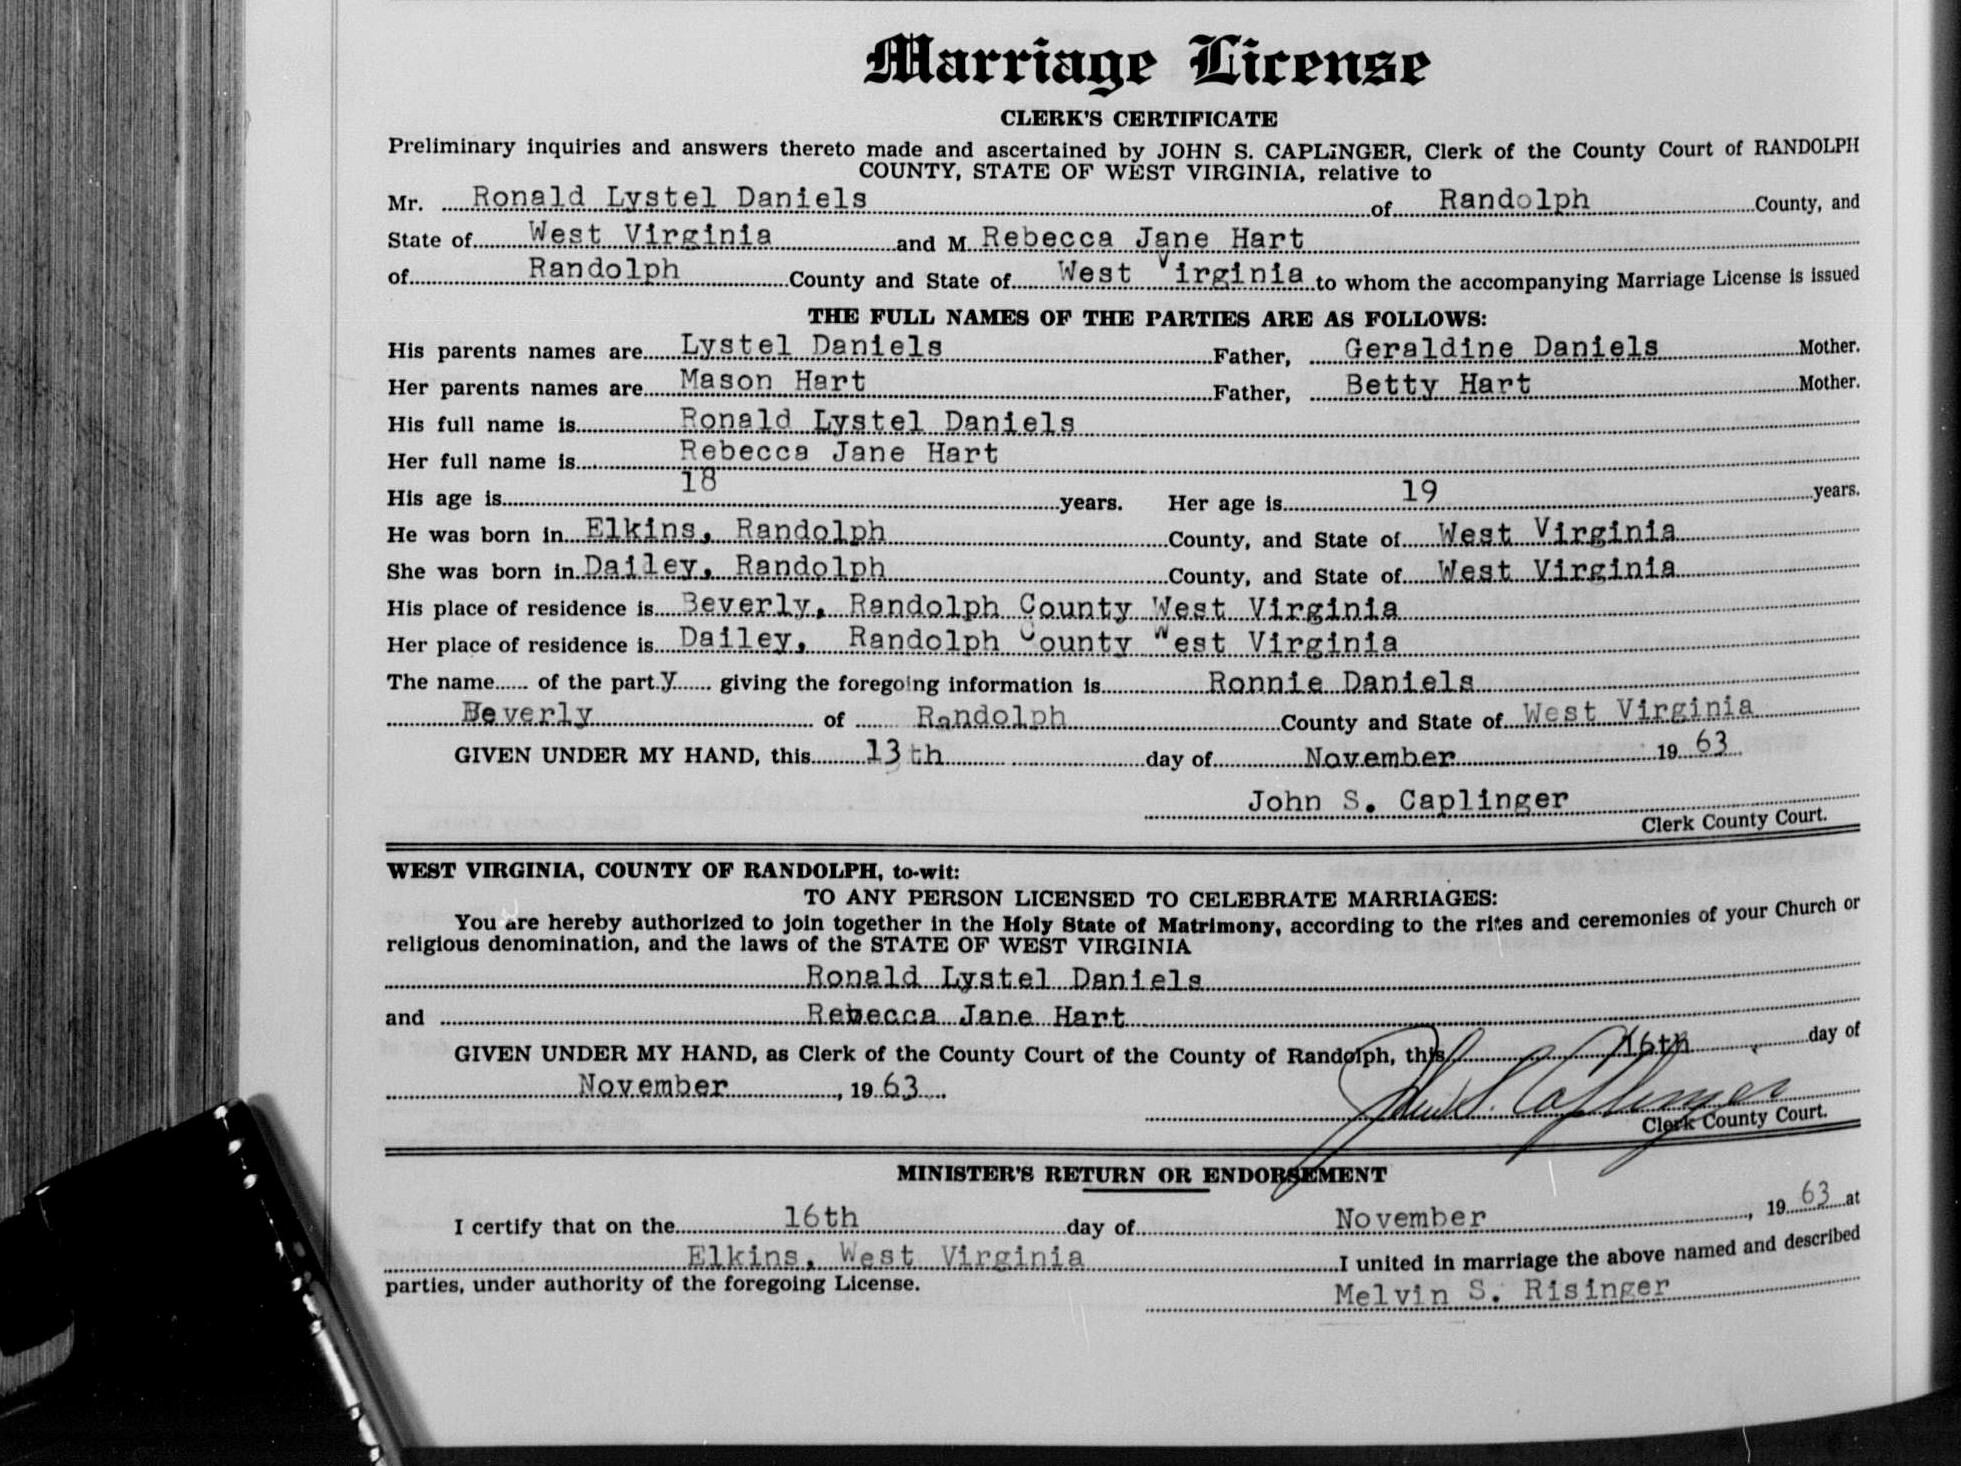 Marriage License
CLERK'S CERTIFICATE
Preliminary inquiries and answers thereto made and ascertained by JOHN S. CAPLINGER, Clerk of the County Court of RANDOLPH
COUNTY, STATE OF WEST VIRGINIA, relative to
Mr. Ronald Lystel Daniels of Randolph County, and
State of West Virginia and M Rebecca Jane Hart
of Randolph County and State of West Virginia to whom the accompanying Marriage License is issued
THE FULL NAMES OF THE PARTIES ARE AS FOLLOWS:
His parents names are Lystel Daniels Father, Geraldine Daniels Mother.
Her parents names are Mason Hart Father, Betty Hart Mother.
His full name is Ronald Lystel Daniels
Her full name is Rebecca Jane Hart
His age is 18 years. Her age is 19 years.
He was born in Elkins, Randolph County, and State of West Virginia
She was born in Dailey, Randolph County, and State of West Virginia
His place of residence is Beverly, Randolph County West Virginia
Her place of residence is Dailey, Randolph County West Virginia
The name of the party giving the foregoing information is Ronnie Daniels
Beverly of Randolph County and State of West Virginia
GIVEN UNDER MY HAND, this 13th day of November 1963
John S. Caplinger
Clerk County Court.
WEST VIRGINIA, COUNTY OF RANDOLPH, to-wit:
TO ANY PERSON LICENSED TO CELEBRATE MARRIAGES:
You are hereby authorized to join together in the Holy State of Matrimony, according to the rites and ceremonies of your Church or
religious denomination, and the laws of the STATE OF WEST VIRGINIA
Ronald Lystel Daniels
and Rebecca Jane Hart
GIVEN UNDER MY HAND, as Clerk of the County Court of the County of Randolph, this 16th day of
November, 1963
John S. Caplinger
Clerk County Court.
MINISTER'S RETURN OR ENDORSEMENT
I certify that on the 16th day of November, 1963 at
Elkins, West Virginia I united in marriage the above named and described
parties, under authority of the foregoing License.
Melvin S. Risinger